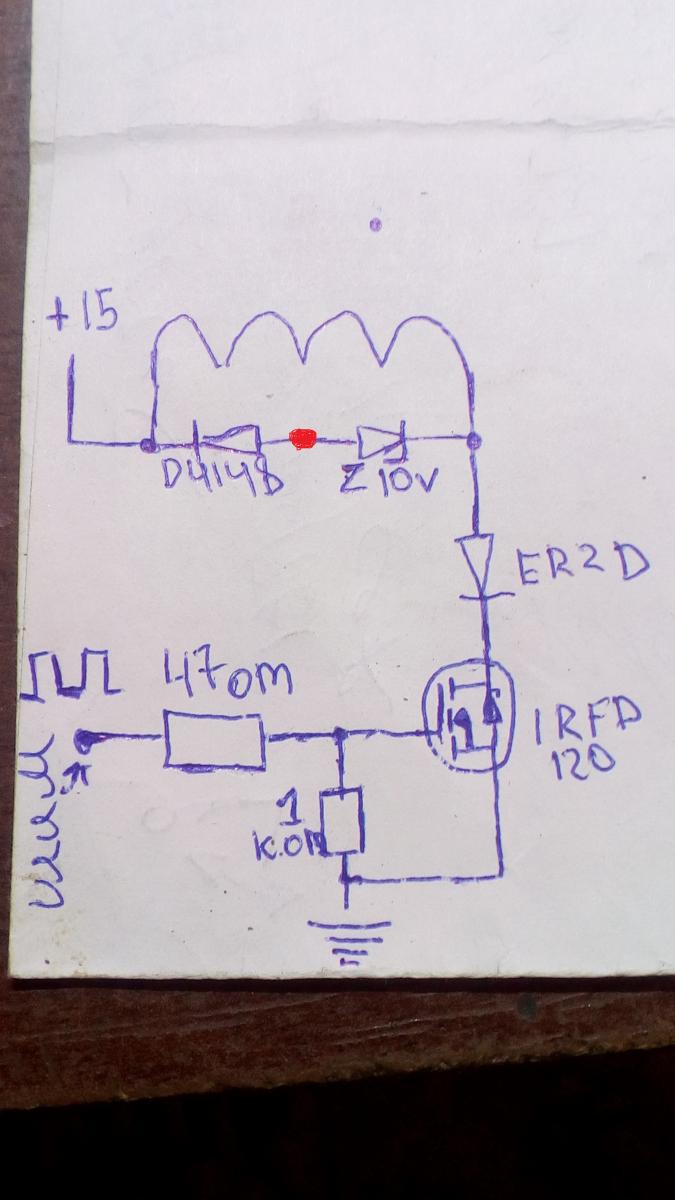 +15
D4148
Z 10v
ER2D
47 om
IRFD
120
1
к.ом